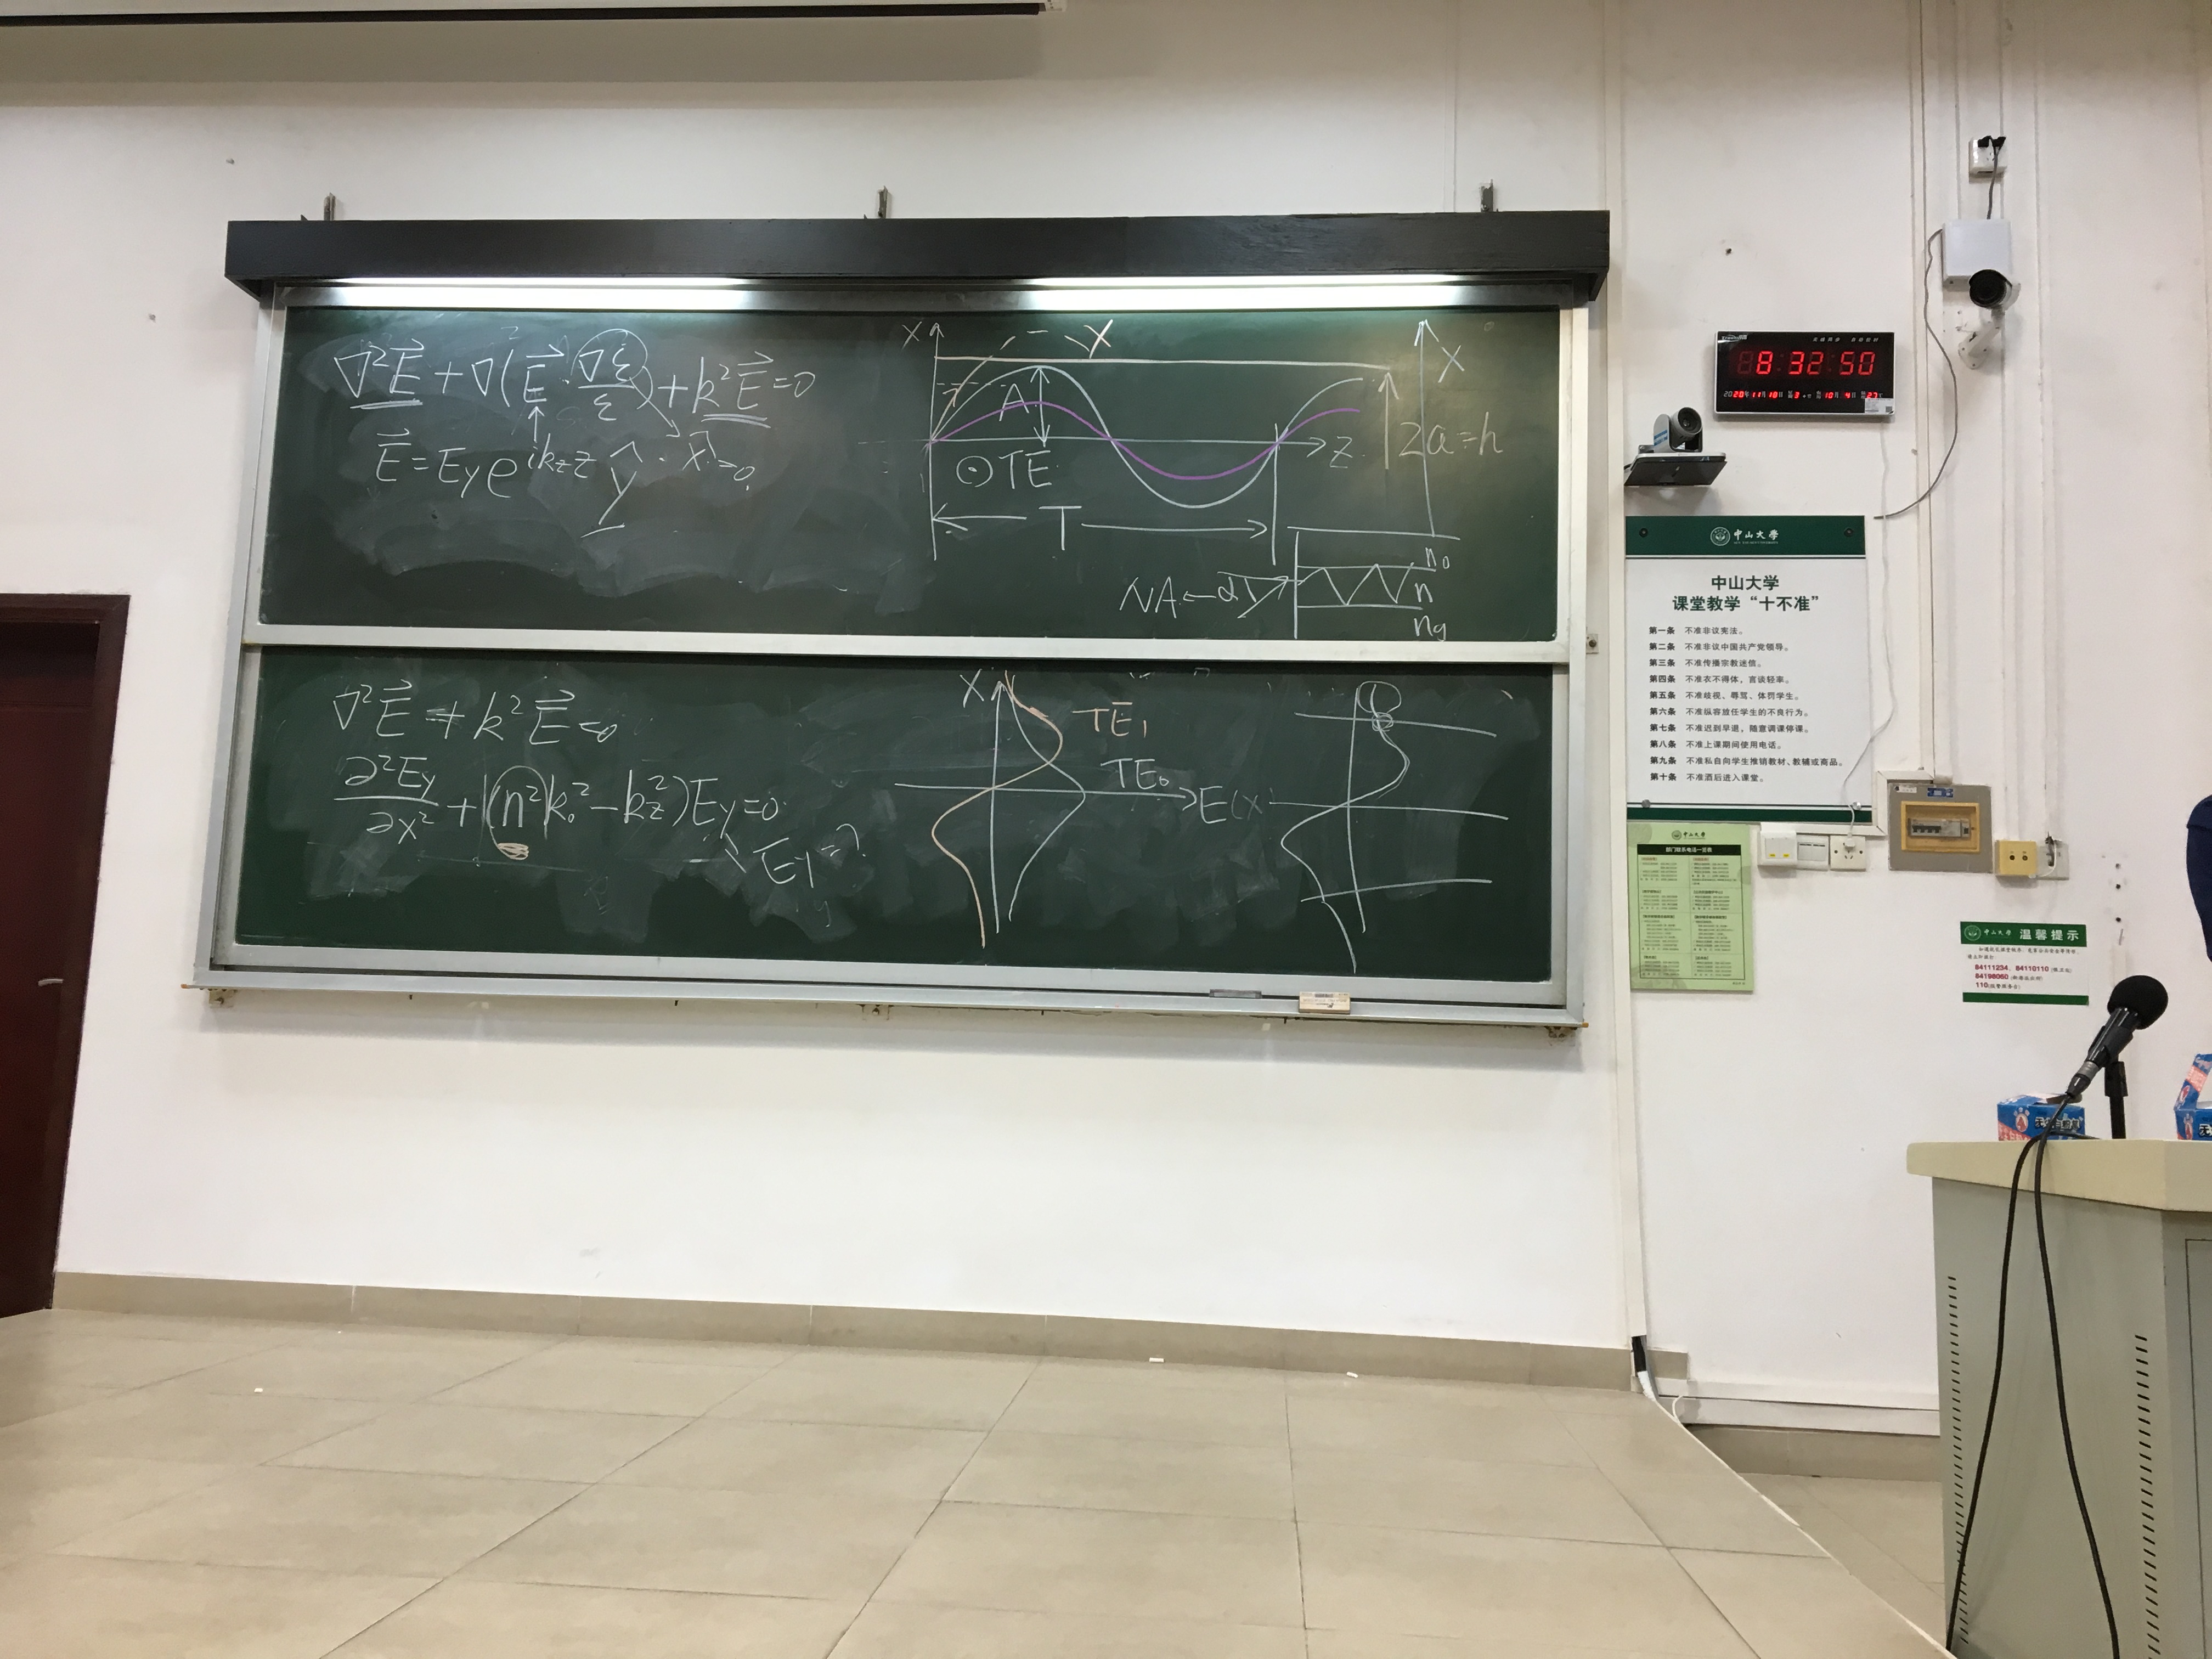 ∇²E⃗ + ∇(E⃗ · ∇ε/ε) + k²E⃗ = 0
E⃗ = Ey e^{ikz z} ŷ · x̂ = 0
X
X
A
Z
⊙TE
T
2a = h
X
NA ← α
n0
n
ng
∇²E⃗ + k²E⃗ = 0
∂²Ey/∂x² + (n²k₀² − kz²)Ey = 0
Ey = ?
X
TE₁
TE₀
E(x)
8 32 50
2020年11月10日
中山大学
中山大学
课堂教学“十不准”
第一条 不准非议宪法。
第二条 不准非议中国共产党领导。
第三条 不准传播宗教迷信。
第四条 不准衣不得体，言谈轻率。
第五条 不准歧视、辱骂、体罚学生。
第六条 不准纵容放任学生的不良行为。
第七条 不准迟到早退，随意调课停课。
第八条 不准上课期间使用电话。
第九条 不准私自向学生推销教材、教辅或商品。
第十条 不准酒后进入课堂。
中山大学
部门联系电话一览表
中山大学 温馨提示
84111234、84110110
84119806
110